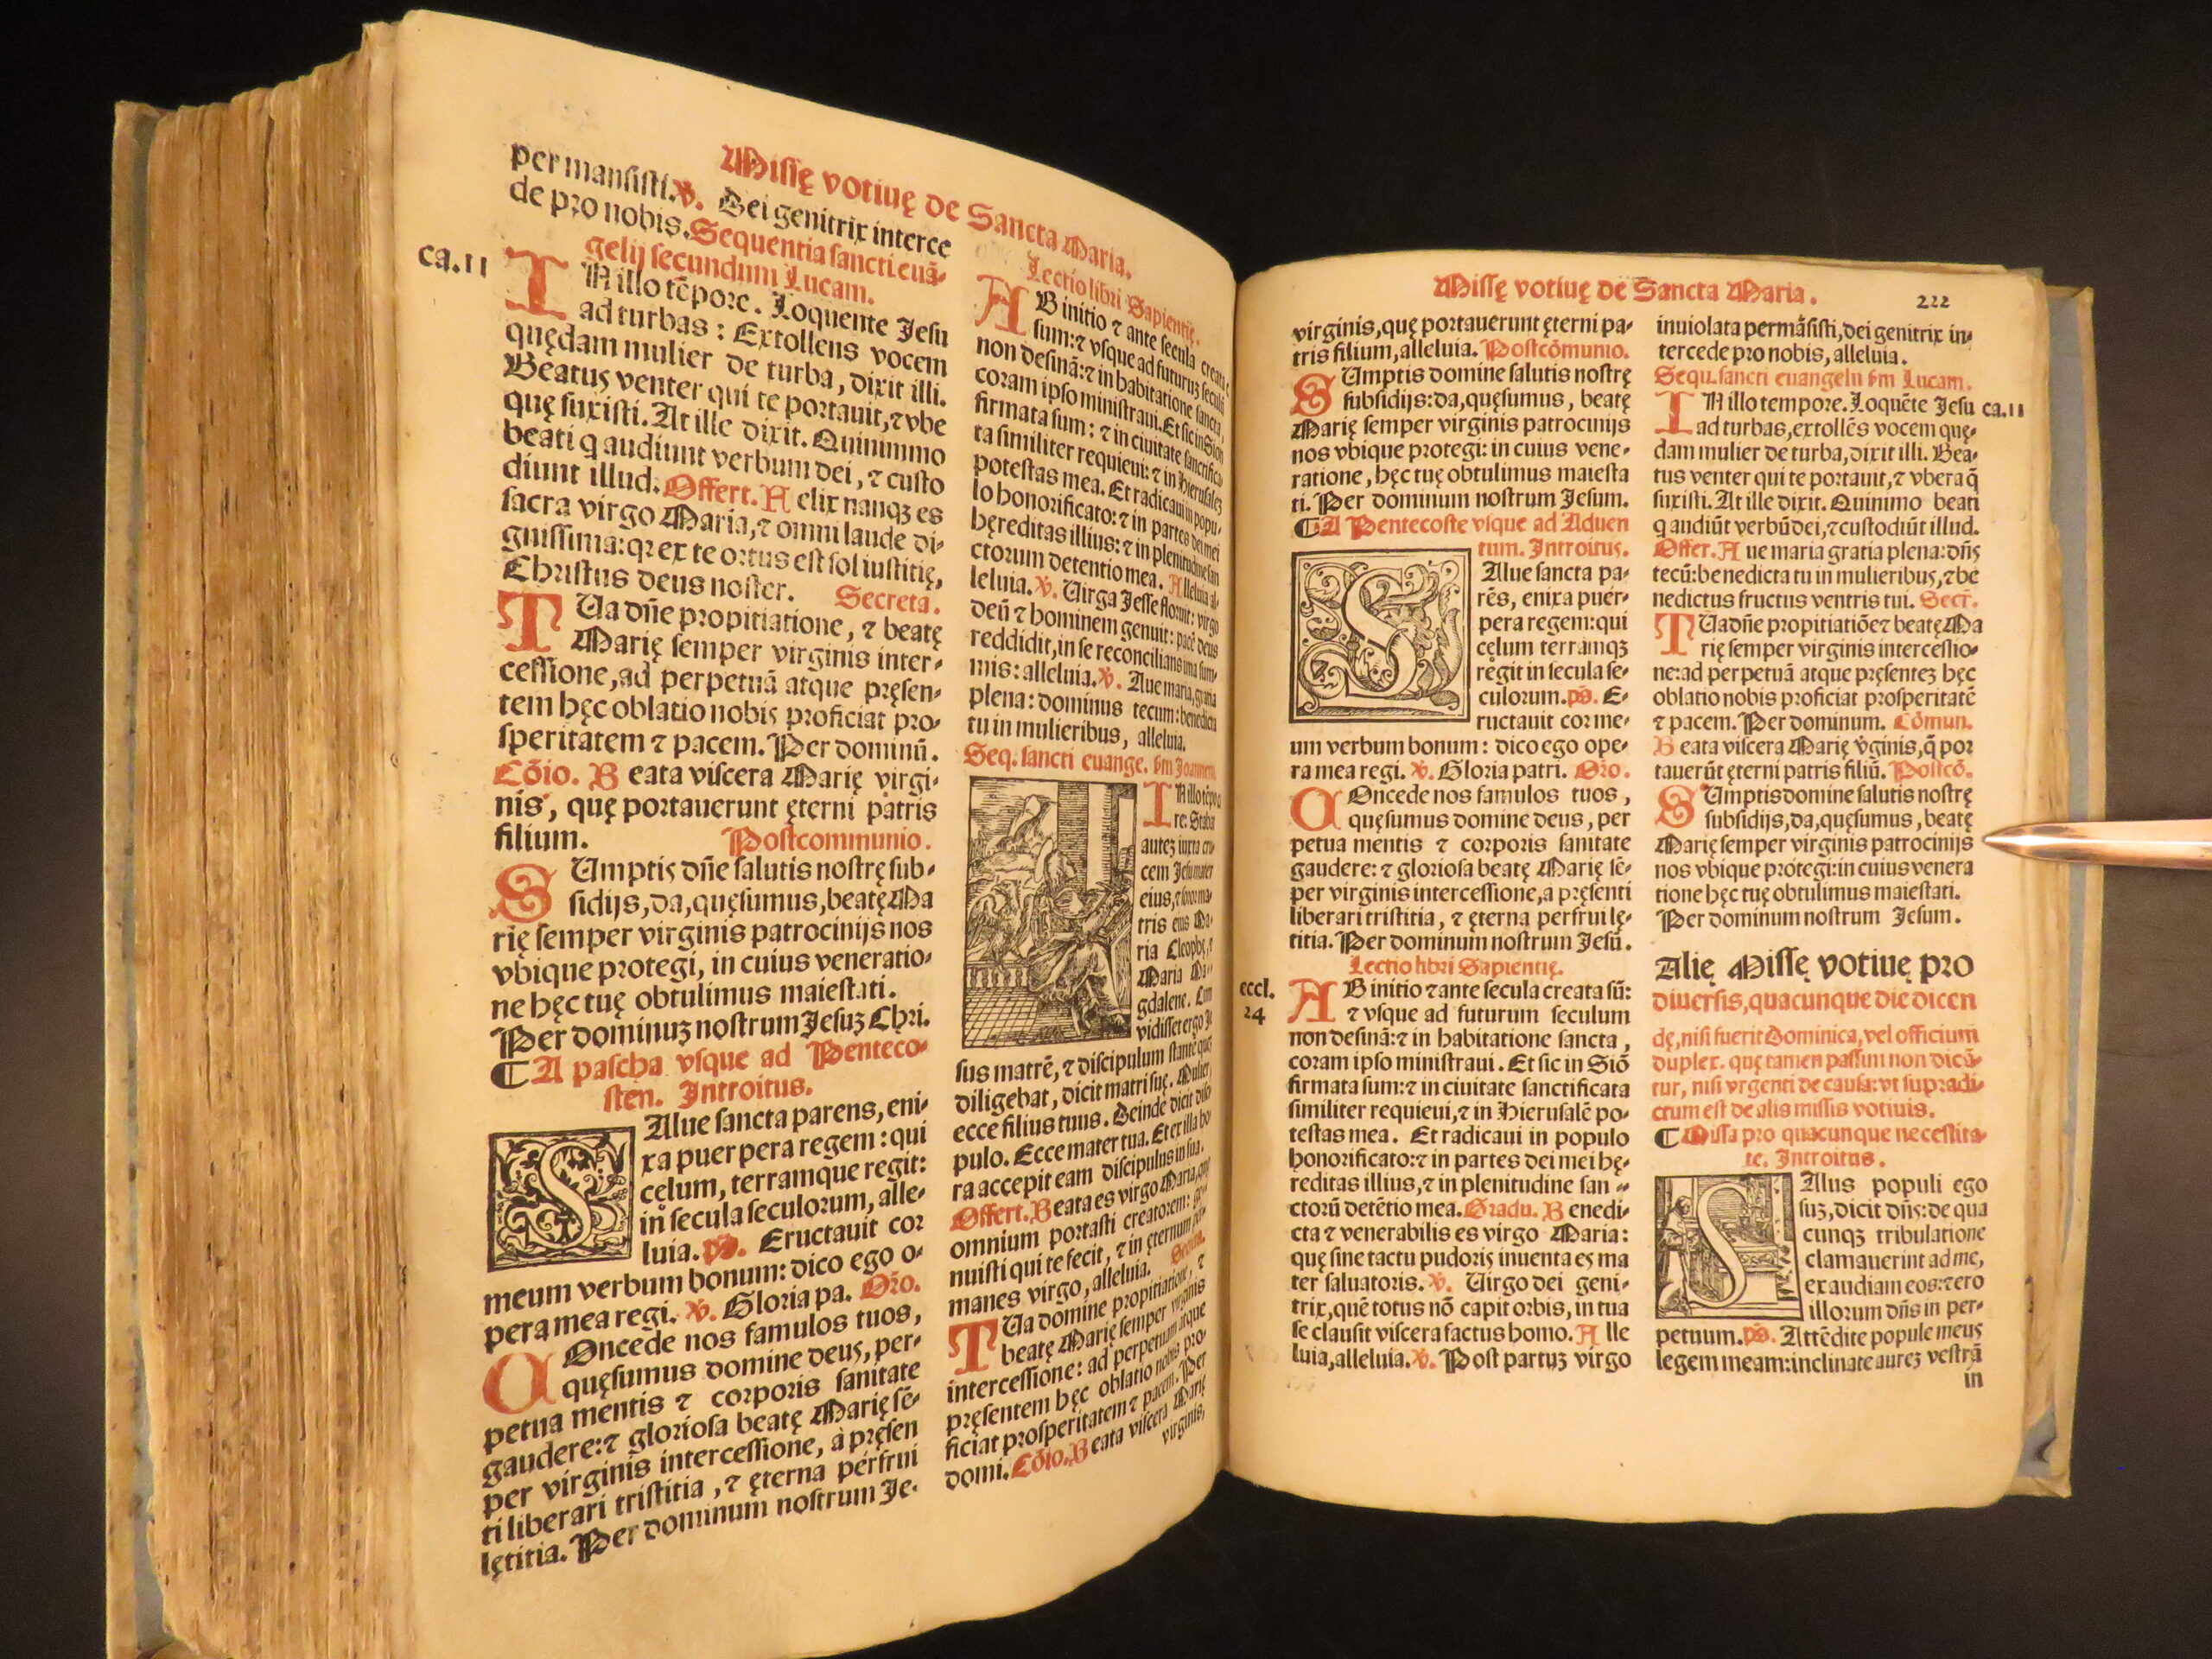 Missę votiuę de Sancta Maria.
permansisti. ℣. Dei genitrix interce
de pro nobis. Sequentia sancti euā-
gelij secundum Lucam.
ca.11
IN illo tēpore. Loquente Jesu
ad turbas: Extollens vocem
quędam mulier de turba, dixit illi.
Beatus venter qui te portauit, ⁊ vbe
quę suxisti. At ille dixit. Quinimmo
beati q audiunt verbum dei, ⁊ custo
diunt illud. Offert. F elix nanqꝫ es
sacra virgo Maria, ⁊ omni laude di-
gnissima: qꝛ ex te ortus est sol iustitię,
Christus deus noster. Secreta.
TUa dn̄e propitiatione, ⁊ beatę
Marię semper virginis inter-
cessione, ad perpetuā atque pręsen-
tem hęc oblatio nobis proficiat pro-
speritatem ⁊ pacem. Per dominū.
Cōio. B eata viscera Marię virgi-
nis, quę portauerunt ęterni patris
filium. Postcommunio.
SUmptis dn̄e salutis nostrę sub-
sidijs, da, quęsumus, beatę Ma
rię semper virginis patrocinijs nos
vbique protegi, in cuius veneratio-
ne hęc tuę obtulimus maiestati.
Per dominuꝫ nostrum Jesuꝫ Chri.
¶ A pascha vsque ad Penteco-
sten. Introitus.
SAlue sancta parens, eni-
xa puerpera regem: qui
cęlum, terramque regit:
in secula seculorum, alle-
luia. ps. Eructauit cor
meum verbum bonum: dico ego o-
pera mea regi. ℣. Gloria pa. Oro.
COncede nos famulos tuos,
quęsumus domine deus, per-
petua mentis ⁊ corporis sanitate
gaudere: ⁊ gloriosa beatę Marię sē-
per virginis intercessione, a pręsen
ti liberari tristitia, ⁊ ęterna perfrui
lętitia. Per dominum nostrum Je-
Lectio libri Sapientię.
AB initio ⁊ ante secula creata
sum: ⁊ vsque ad futuruꝫ seculū
non desinā: ⁊ in habitatione sancta,
coram ipso ministraui. Et sic in Sion
firmata sum: ⁊ in ciuitate sanctifica
ta similiter requieui: ⁊ in Hierusaleꝫ
potestas mea. Et radicaui in popu-
lo honorificato: ⁊ in partes dei mei
hęreditas illius: ⁊ in plenitudine san
ctorum detentio mea. Alleluia al-
leluia. ℣. Uirga Jesse floruit: virgo
deū ⁊ hominem genuit: pacē deus
reddidit, in se reconcilians ima sum-
mis: alleluia. ℣. Aue maria, gratia
plena: dominus tecum: benedicta
tu in mulieribus, alleluia.
Seq. sancti euange. ẜm Joannem.
IN illo tēpo
re: Stabat
auteꝫ iuxta cru
cem Jesu mater
eius, ⁊ soror ma-
tris eius Ma-
ria Cleophę, ⁊
Maria Ma-
gdalene. Cum
vidisset ergo Je
sus matrē, ⁊ discipulum stantē quē
diligebat, dicit matri suę. Mulier
ecce filius tuus. Deinde dicit disci
pulo. Ecce mater tua. Et ex illa ho
ra accepit eam discipulus in sua.
Offert. Beata es virgo Maria, quę
omnium portasti creatorem: ge-
nuisti qui te fecit, ⁊ in ęternum per-
manes virgo, alleluia. Secreta.
TUa domine propitiatione, ⁊
beatę Marię semper virginis
intercessione: ad perpetuam atque
pręsentem hęc oblatio nobis pro-
ficiat prosperitatem ⁊ pacem. Per
domi. Cōio. B eata viscera Marię
virginis,
Missę votiuę de Sancta Maria.
222
virginis, quę portauerunt ęterni pa-
tris filium, alleluia. Postcōmunio.
SUmptis domine salutis nostrę
subsidijs: da, quęsumus, beatę
Marię semper virginis patrocinijs
nos vbique protegi: in cuius vene-
ratione, hęc tuę obtulimus maiesta
ti. Per dominum nostrum Jesum.
¶ A Pentecoste vsque ad Aduen
tum. Introitus.
SAlue sancta pa-
rēs, enixa puer-
pera regem: qui
cęlum terramqꝫ
regit in secula se-
culorum. ps. E-
ructauit cor me-
um verbum bonum: dico ego ope-
ra mea regi. ℣. Gloria patri. Oro.
COncede nos famulos tuos,
quęsumus domine deus, per
petua mentis ⁊ corporis sanitate
gaudere: ⁊ gloriosa beatę Marię sē-
per virginis intercessione, a pręsenti
liberari tristitia, ⁊ ęterna perfrui lę-
titia. Per dominum nostrum Jesū.
Lectio libri Sapientię.
eccl.
24
AB initio ⁊ ante secula creata sū:
⁊ vsque ad futurum seculum
non desinā: ⁊ in habitatione sancta,
coram ipso ministraui. Et sic in Siō
firmata sum: ⁊ in ciuitate sanctificata
similiter requieui, ⁊ in Hierusalē po-
testas mea. Et radicaui in populo
honorificato: ⁊ in partes dei mei hę-
reditas illius, ⁊ in plenitudine san-
ctorū detētio mea. Gradu. B enedi-
cta ⁊ venerabilis es virgo Maria:
quę sine tactu pudoris inuenta es ma
ter saluatoris. ℣. Uirgo dei geni-
trix, quē totus nō capit orbis, in tua
se clausit viscera factus homo. A lle
luia, alleluia. ℣. Post partuꝫ virgo
inuiolata permāsisti, dei genitrix in-
tercede pro nobis, alleluia.
Sequ. sancti euangelii ẜm Lucam.
IN illo tempore. Loquēte Jesu
ca.11
ad turbas, extollēs vocem quę-
dam mulier de turba, dixit illi. Bea-
tus venter qui te portauit, ⁊ vbera q̄
suxisti. At ille dixit. Quinimo beati
q audiūt verbū dei, ⁊ custodiūt illud.
Offer. A ue maria gratia plena: dn̄s
tecū: benedicta tu in mulieribus, ⁊ be
nedictus fructus ventris tui. Secr̄.
TUa dn̄e propitiatiōe ⁊ beatę Ma
rię semper virginis intercessio-
ne: ad perpetuā atque pręsenteꝫ hęc
oblatio nobis proficiat prosperitatē
⁊ pacem. Per dominum. Cōmun.
B eata viscera Marię v̄ginis, q̄ por
tauerūt ęterni patris filiū. Postcō.
SUmptis domine salutis nostrę
subsidijs, da, quęsumus, beatę
Marię semper virginis patrocinijs
nos vbique protegi: in cuius venera
tione hęc tuę obtulimus maiestati.
Per dominum nostrum Jesum.
Alię Missę votiuę pro
diuersis, quacunque die dicen
dę, nisi fuerit Dominica, vel officium
duplex. quę tamen passim non dicū-
tur, nisi vrgenti de causa: vt supradi-
ctum est de alis missis votiuis.
¶ Missa pro quacunque necessita-
te. Introitus.
SAlus populi ego
suꝫ, dicit dn̄s: de qua
cunqꝫ tribulatione
clamauerint ad me,
exaudiam eos: ⁊ ero
illorum dn̄s in per-
petuum. ps. Attēdite popule meus
legem meam: inclinate aureꝫ vestrā
in